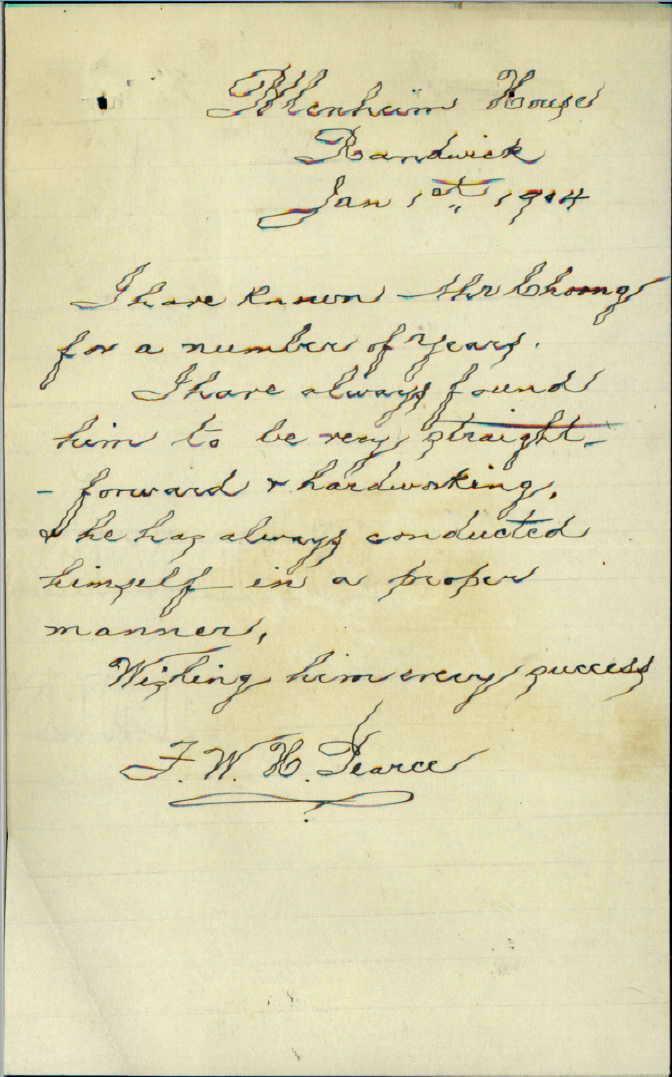 Blenheim House
Randwick
Jan 1st,, 1904
I have known Mr Choong
for a number of years.
I have always found
him to be very straight-
- forward & hardworking,
& he has always conducted
himself in a proper
manner,
Wishing him every success
F. W. H. Pearce